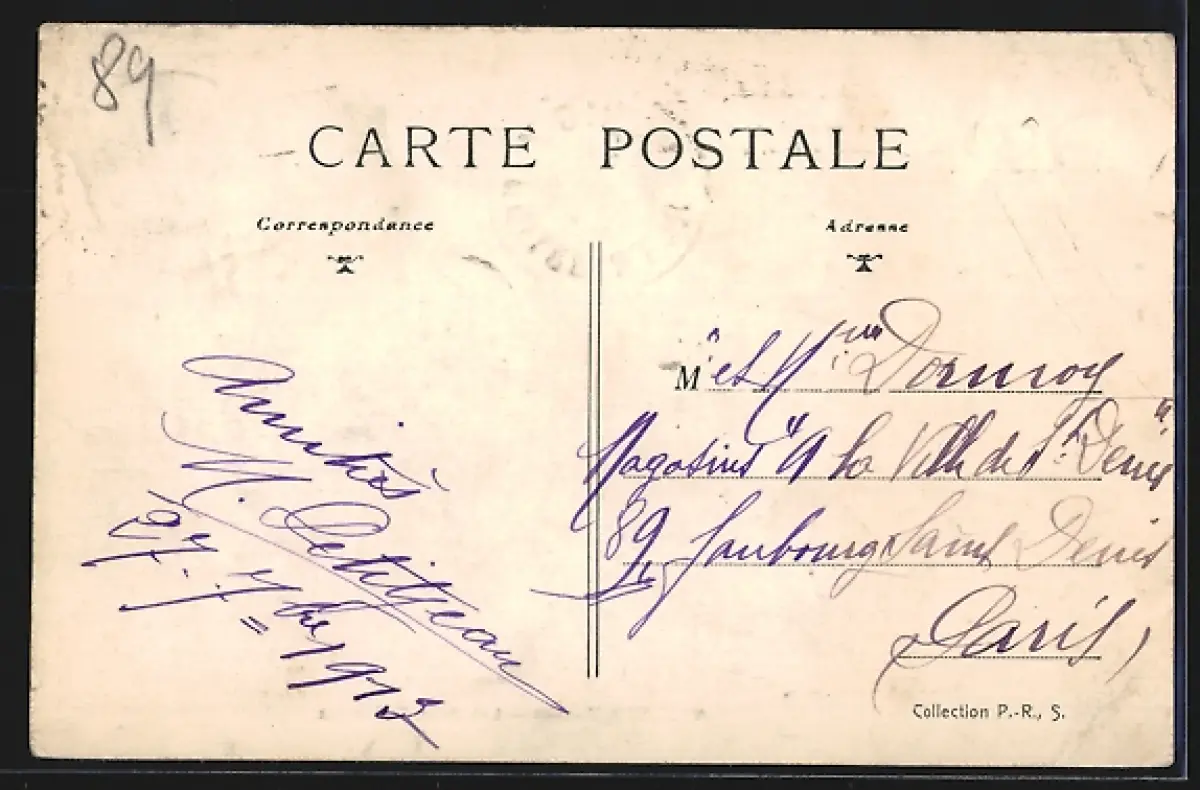 89
CARTE POSTALE
Correspondance
Adresse
Amitiés
M. Petitjean
27 7bre 1912
M et Mme Dormoy
Magasins "A la Ville de St Denis"
89, faubourg Saint Denis
Paris
Collection P.-R., S.